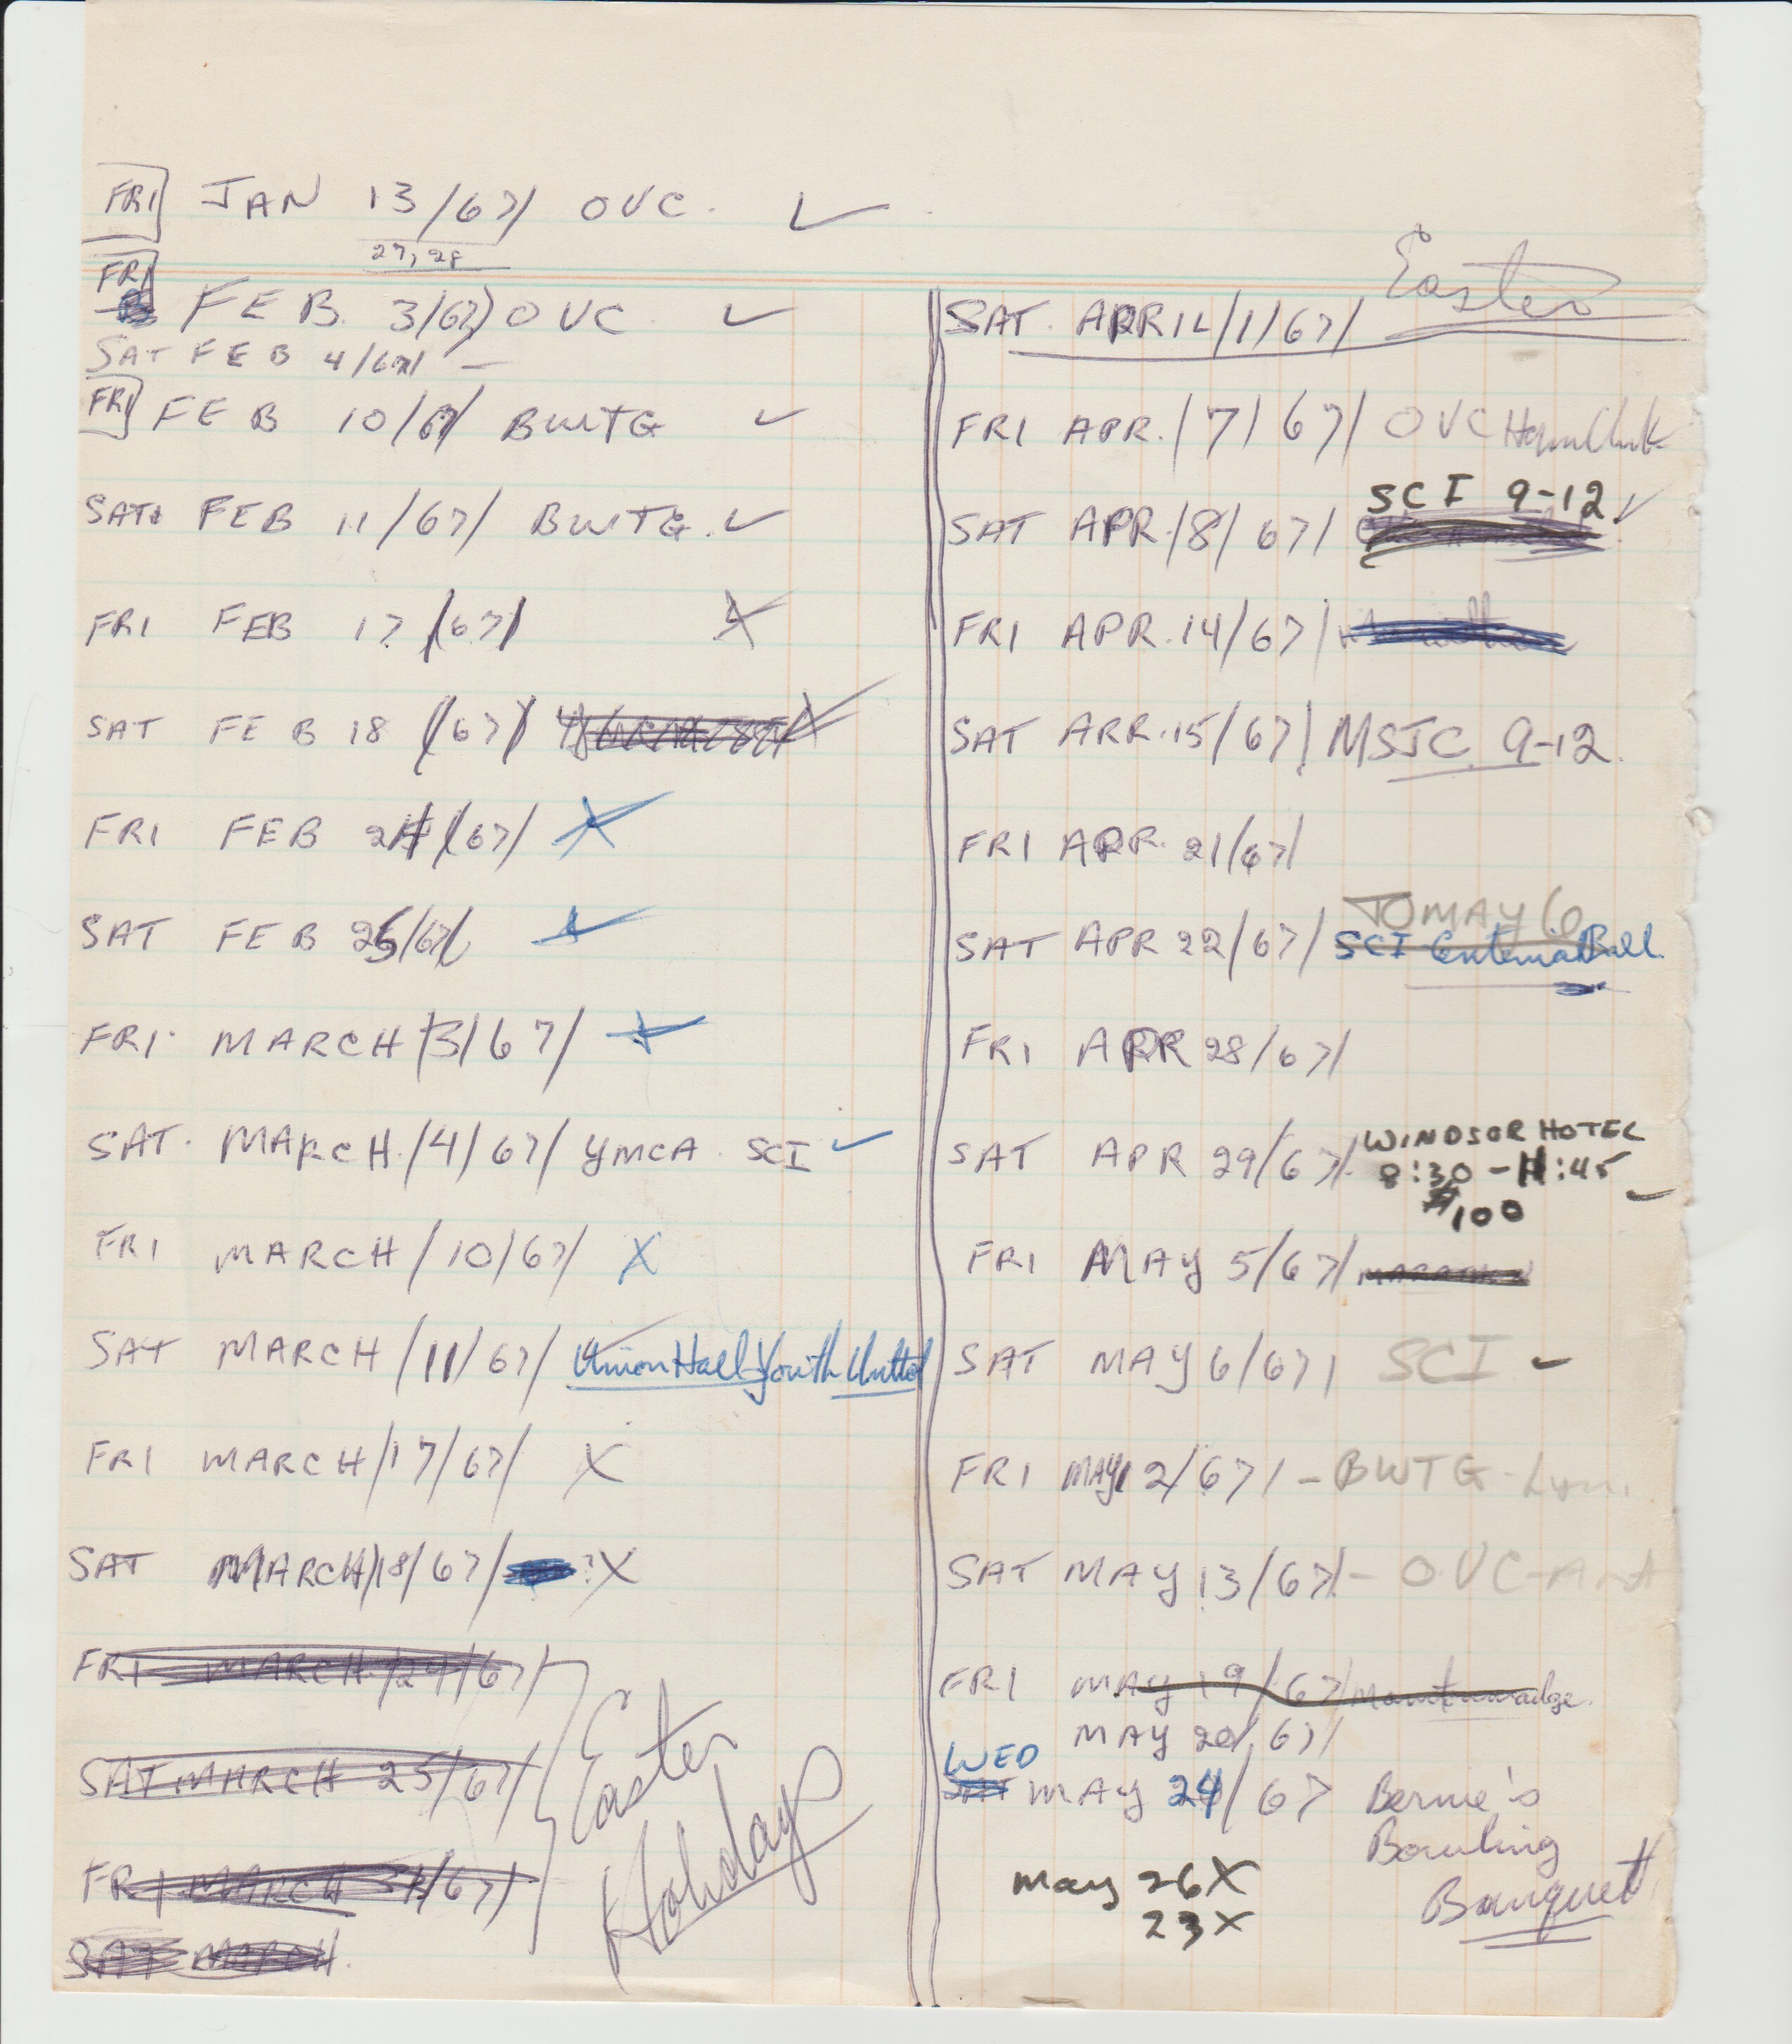 FRI JAN 13/67/ OVC.
27, 28
FRI FEB. 3/67/ OVC
SAT FEB 4/67/ —
FRI FEB 10/67/ BWTG
SAT FEB 11/67/ BWTG.
FRI FEB 17/67/ X
SAT FEB 18/67/
FRI FEB 24/67/ X
SAT FEB 25/67/
FRI. MARCH/3/67/
SAT. MARCH./4/67/ YMCA. SCI
FRI MARCH/10/67/ X
SAT MARCH/11/67/ Union Hall Youth United
FRI MARCH/17/67/ X
SAT MARCH/18/67/ ?X
FRI MARCH./24/67/
SAT MARCH 25/67/
FRI MARCH 31/67/
SAT MARCH.
Easter
Holidays
SAT. APRIL/1/67/ Easter
FRI APR./7/67/ OVC
SAT APR./8/67/ SCI 9-12
FRI APR.14/67/
SAT APR.15/67/ MSJC 9-12.
FRI APR. 21/67/
TO MAY 6
SAT APR 22/67/ SCI Ball
FRI APR 28/67/
SAT APR 29/67/ WINDSOR HOTEL
8:30 - 11:45
$100
FRI MAY 5/67/ MARATHON
SAT MAY 6/67/ SCI
FRI MAY 12/67/ - BWTG -
SAT MAY 13/67/ - OVC -
FRI MAY 19/67/
MAY 20/67/
WED
SAT MAY 24/67 Bernie's
Bowling
Banquet
May 26 X
23 X